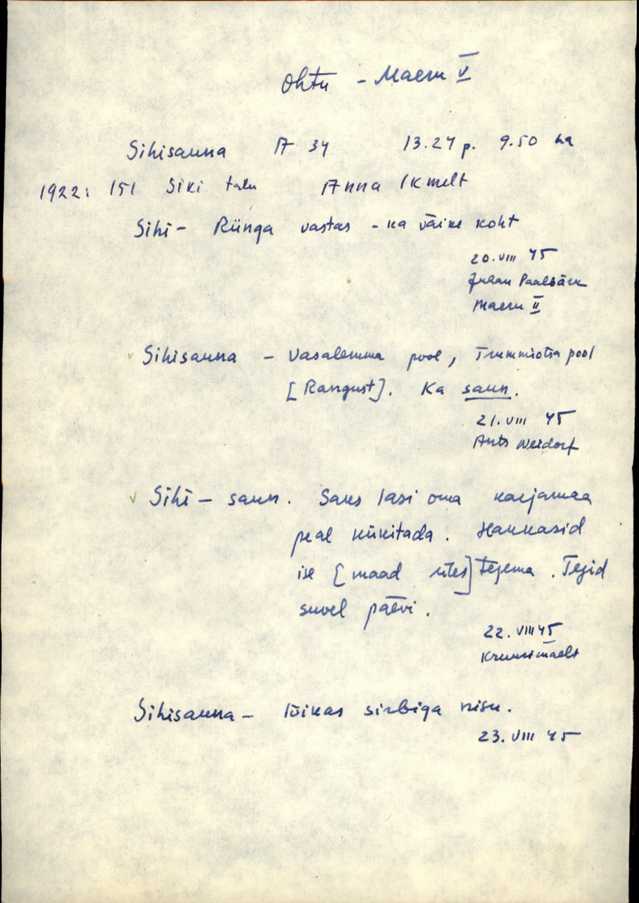 Ohtu - Maeru V
Sihisauna A 34 13.27 p. 9.50 ha
1922: 151 Sihi talu Anna Ikmelt
Sihi - Rünga vastas - ka väike koht
20. VIII 45
Juhan
Maeru II
Sihisauna - Vasalemma pool, Trummiotsa pool
[Rangust]. Ka saun.
21. VIII 45
Ants Neidorf
Sihi - saun. Saks lasi oma karjamaa
peal kükitada. Hakkasid
ise [maad üles] tegema. Tegid
suvel päevi.
22. VIII 45
Sihisauna - lõikas sirbiga nisu.
23. VIII 45